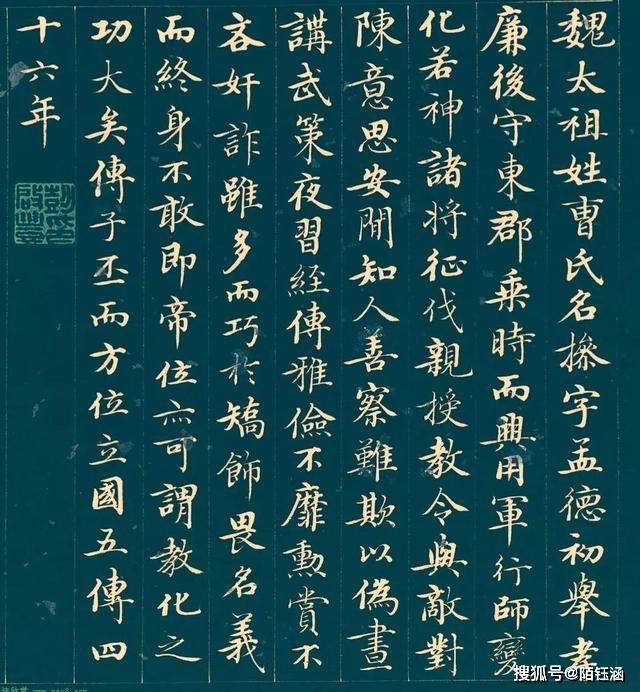 魏太祖姓曹氏名操字孟德初舉孝
廉後守東郡乘時而興用軍行師變
化若神諸將征伐親授教令與敵對
陳意思安閒知人善察難欺以偽晝
講武策夜習經傳雅儉不靡勳賞不
吝奸詐雖多而巧於矯飾畏名義
而終身不敢即帝位亦可謂教化之
功大矣傳子丕而方位立國五傳四
十六年
搜狐号@陌钰涵